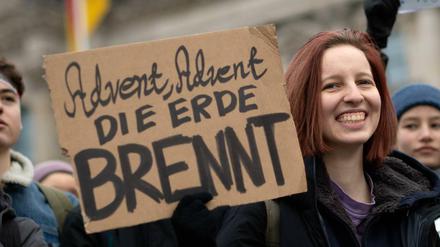 Advent, Advent
DIE ERDE
BRENNT